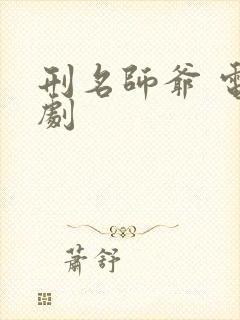 刑名師爺 電
劇
蕭舒